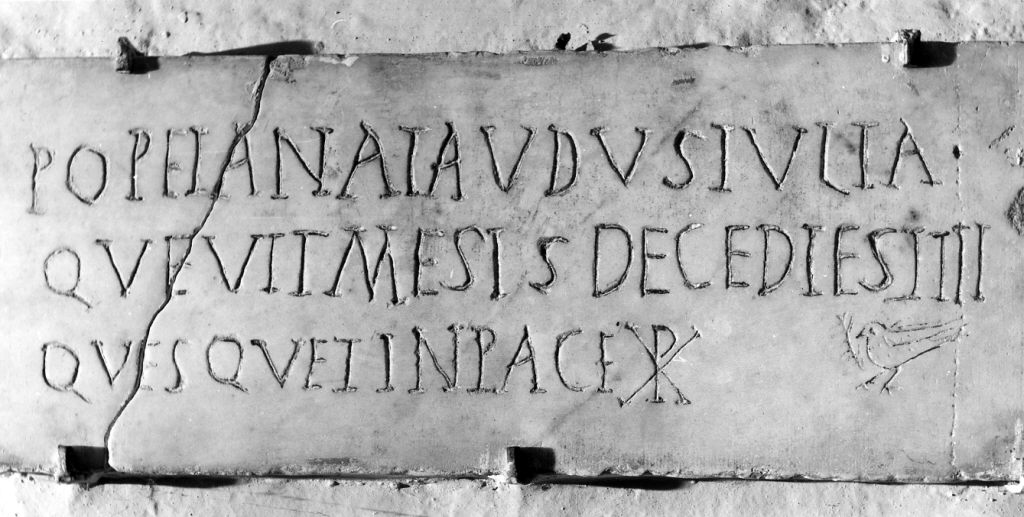 POPEIANATAVDVSIVLIA
QVEVITMESISSDECEDIESIIII
QVESQVETINPACE ☧